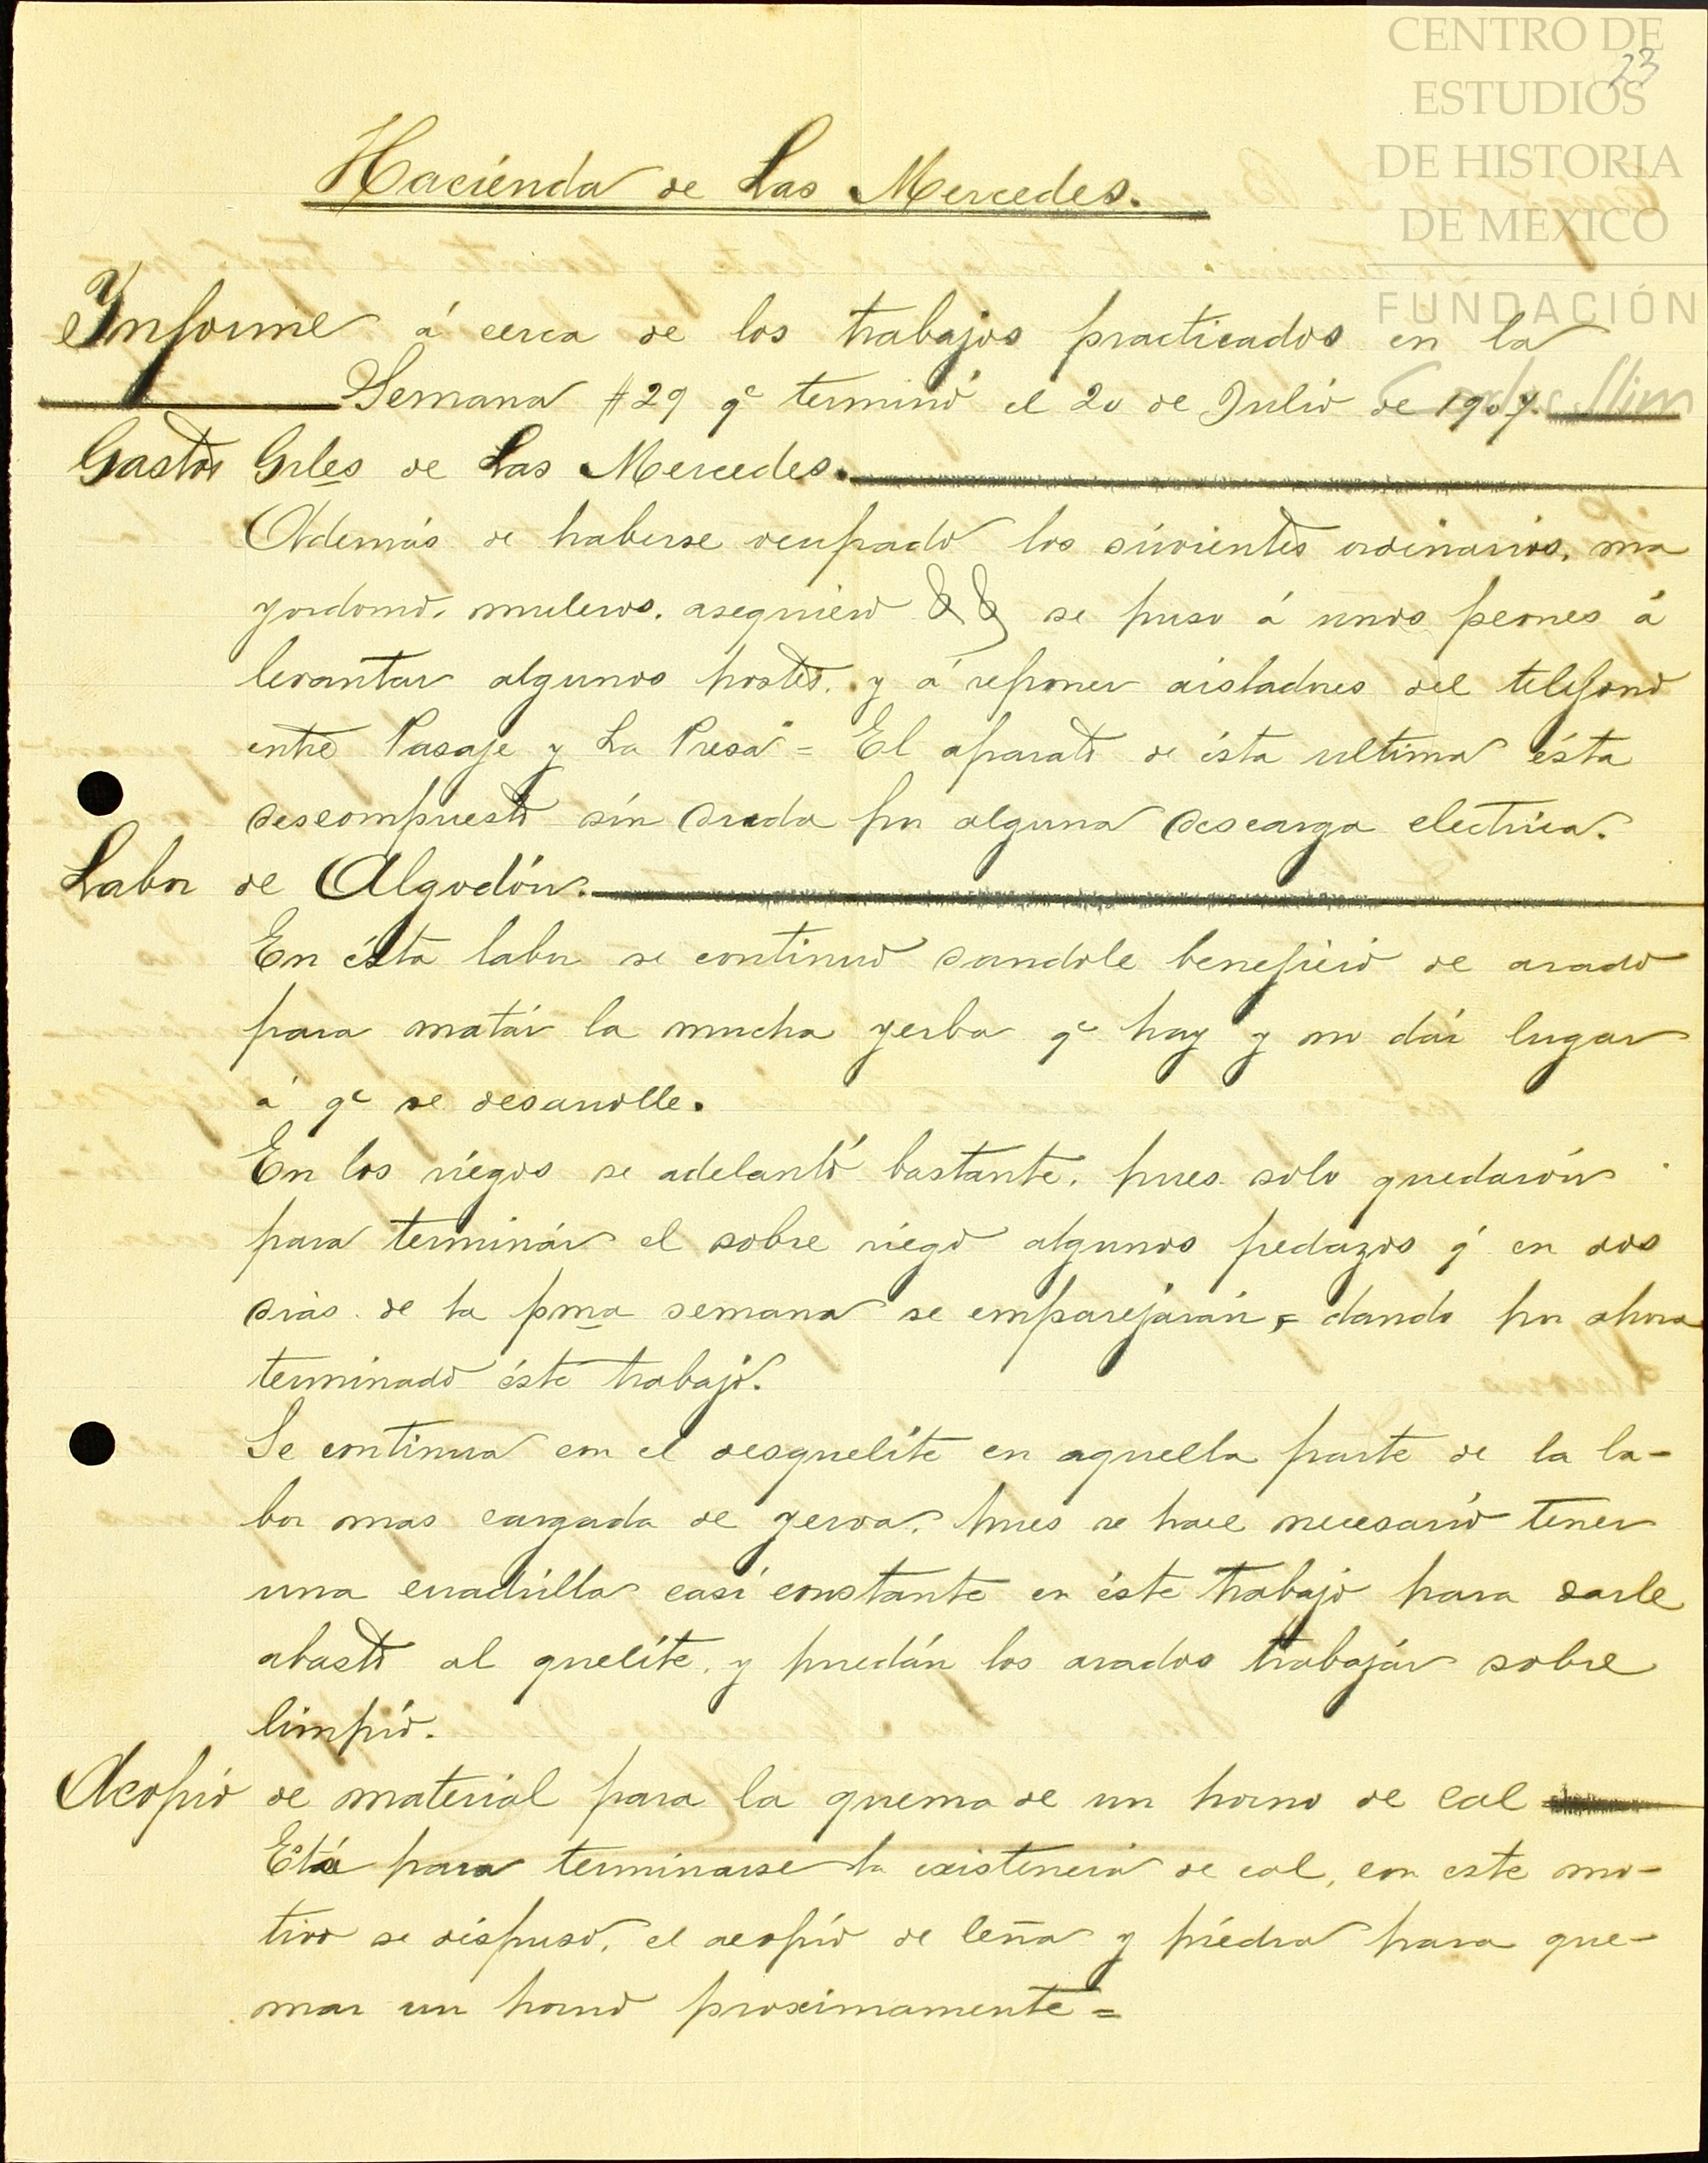 CENTRO DE
ESTUDIOS
DE HISTORIA
DE MEXICO
FUNDACIÓN
Carlos Slim
23
Haciénda de Las Mercedes.
Informe á cerca de los trabajos practicados en la
Semana #29 qe terminó el 20 de Julio de 1907.
Gastos Grles de Las Mercedes.
Además de haberse ocupado los sirvientes ordinarios, ma
yordomo, muleros, asequiero && se puso á unos peones á
levantar algunos postes, y á reponer aisladores del telefono
entre Pasaje y La Presa = El aparato de ésta ultima ésta
descompuesto sin duda por alguna descarga electrica.
Labor de Algodón.
En ésta labor se continuó dandole beneficio de arado
para matár la mucha yerba qe hay y no dár lugar
á qe se desarrolle.
En los riegos se adelantó bastante, pues solo quedarón
para terminár el sobre riego algunos pedazos q' en dos
dias de la pma semana se emparejarán, dando por ahora
terminado éste trabajo.
Se continua con el desquelite en aquella parte de la la-
bor mas cargada de yerva, pues se hace necesario tener
una cuadrilla casi constante en éste trabajo para darle
abasto al quelite, y puedán los arados trabajár sobre
limpio.
Acopio de material para la quema de un horno de cal
Está para terminarse la existencia de cal, con este mo-
tivo se dispuso, el acopio de leña y piédra para que-
mar un horno proximamente =